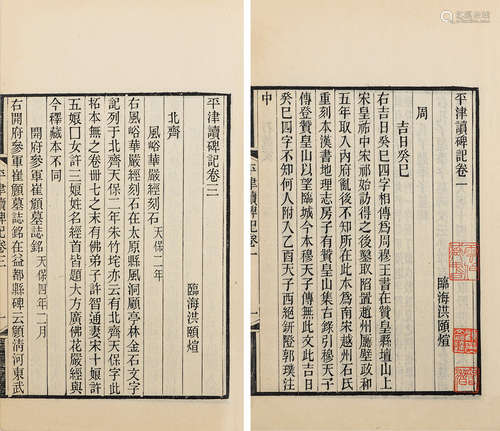 平津讀碑記卷一
臨海洪頤煊
周
吉日癸巳
右吉日癸巳四字相傳爲周穆王書在贊皇縣壇山上
宋皇祐中宋祁始訪得之後鑿取陷置趙州廳壁政和
五年取入內府亂後不知所在此本爲南宋越州石氏
重刻本漢書地理志房子有贊皇山集古錄引穆天子
傳登贊皇山以望臨城今本穆天子傳無此文此吉日
癸巳四字不知何人附入乙酉天子西絕鈃隥郭璞注
中
平津讀碑記卷一
平津讀碑記卷三
臨海洪頤煊
北齊
風峪華嚴經刻石 天保二年
右風峪華嚴經刻石在太原縣風洞顧亭林金石文字
記列于北齊天保二年朱竹垞亦云有北齊天保字此
拓本無之卷卌七之末有佛弟子許智通妻宋十娘許
五娘囗女許三娘姓名經首皆題大方廣佛花嚴經與
今釋藏本不同
開府參軍崔頠墓誌銘 天保四年二月
右開府參軍崔頠墓誌銘在益都縣碑云頠清河東武
平津讀碑記卷三